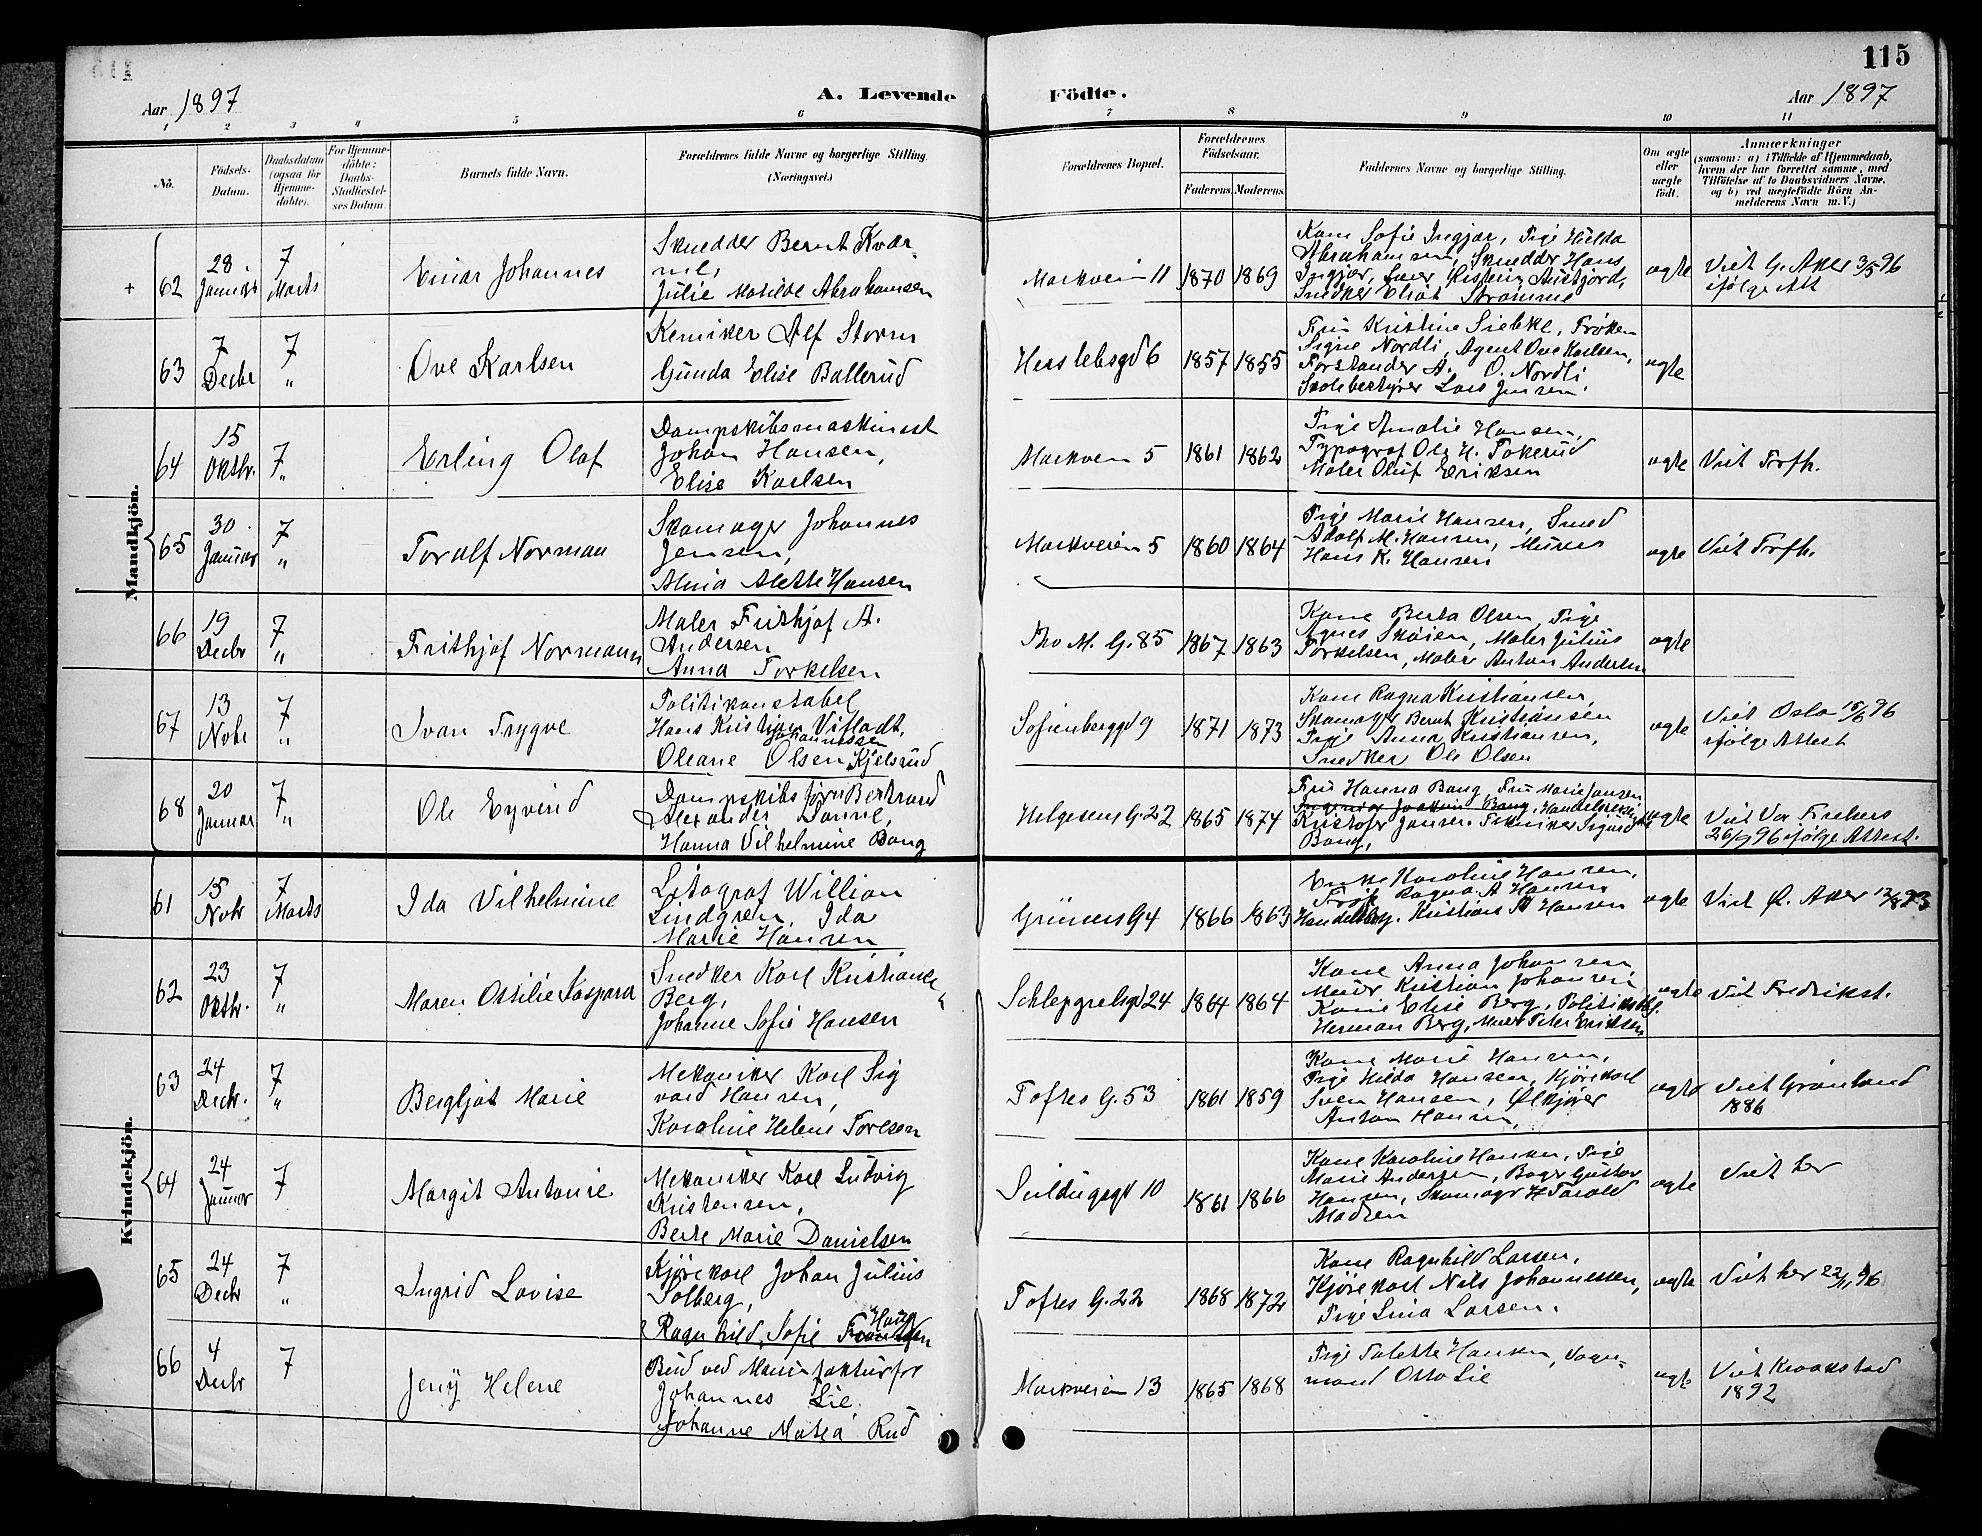 115
Aar 1897
A. Levende Födte.
Aar 1897
1 2 3 4 5 6 7 8 9 10 11
No.
Födsels-Datum.
Daabsdatum (ogsaa for Hjemme-döbte).
For Hjemme-döbte: Daabs-Stadfæstel-ses Datum.
Barnets fulde Navn.
Forældrenes fulde Navne og borgerlige Stilling.
(Næringsvei.)
Forældrenes Bopæl.
Forældrenes Födselsaar.
Faderens. Moderens.
Faddernes Navne og borgerlige Stilling.
Om ægte eller uægte født.
Anmærkninger
(saasom: a) i Tilfælde af Hjemmedaab,
hvem der har forrettet samme, med
Tilföielse af to Daabsvidners Navne,
og b) ved uægtefödte Börn An-
melderens Navn m. V.)
Mandkjön.
+ 62
28 Januar
7 Marts
Einar Johannes
Skrædder Bernt Kvær-
ne,
Julie Matilde Abrahamsen
Markveien 11
1870 1869
Kone Sofie Ingjør, Pige Hulda
Abrahamsen, Skrædder Hans
Ingjør, Østein Austjord,
Snedker Eliot Strömme
ægte
Viet G. Aker 3/5 96
ifølge Att
63
7 Decbr
7 "
Ove Karlsen
Kemiker Alf Storm
Gunda Elise Ballerud
Hesslebsgd 6
1857 1855
Fru Kristine Siebke, Frøken
Signe Nordli, Agent Ove Karlsen,
Forstander A. O. Nordli
Skolebestyrer Lars Jensen.
ægte
64
15 Oktbr.
7 "
Erling Olaf
Dampskibsmaskinist
Johan Hansen,
Elise Karlsen
Markvein 5
1861 1862
Pige Amalie Hansen,
Typograf Ole H. Fokerud
Maler Oluf Eriksen
ægte
Viet Trefh.
65
30 Januar
7 "
Toralf Norman
Skomager Johannes
Jensen,
Alma Alette Hansen
Markveien 5
1860 1864
Pige Marie Hansen, Smed
Adolf M. Hansen, Murer
Hans K. Hansen
ægte
Viet Trefh.
66
19 Decbr
7 "
Frithjof Normann
Maler Frithjof A.
Andersen
Anna Torkelsen
Tho M. G. 85
1867 1863
Kone Berta Olsen, Pige
Agnes Skøien, Maler Julius
Torkelsen, Maler Anton Andersen
ægte
67
13 Novbr
7 "
Ivan Trygve
Politikonstabel
Hans Kristian Vifladt,
Johannessen
Oleane Olsen Kjelsrud
Sofienberggd 9
1871 1873
Kone Ragna Kristiansen,
Skomager Bernt Kristiansen
Pige Anna Kristiansen,
Snedker Ole Olsen
ægte
Viet Oslo 15/6 96
ifølge Attest
68
20 Januar
7 "
Ole Eyvind
Dampskibsfører Bertrand
Alexander Danne,
Hanna Vilhelmine Bang
Helgesens G. 22
1865 1874
Fru Hanna Bang, Fru Marie Jansen
Ingeniør Joakim Bang, Handelsreis
Kristofer Jansen, Tekniker Sigurd
Bang,
ægte
Viet Vor Frelsers
26/9 96 ifølge Attest.
Kvindekjön.
61
15 Novbr
7 Marts
Ida Vilhelmine
Litograf Willian
Lindgren, Ida
Marie Hansen
Grüners G 4
1866 1863
Enke Karoline Hansen,
Frøk Ragna A Hansen
Handelsbtj. Kristians A Hansen
ægte
Viet Ø. Aker 12/8 93
62
23 Oktbr.
7 "
Maren Ottilie Kaspara
Snedker Karl Kristian
Berg,
Johanne Sofie Hansen
Schleppegrelsgd 24
1864 1864
Kone Anna Johansen,
Murer Kristian Johansen,
Kone Elise Berg, Politikstbl.
Herman Berg, Murer Peter Eriksen
ægte
Viet Fredrikst.
63
24 Decbr.
7 "
Bergljot Marie
Mekaniker Karl Sig
vard Hansen,
Karoline Helene Toresen
Toftes G. 53
1861 1859
Kone Marie Hansen,
Pige Hilda Hansen, Kjørekarl
Sven Hansen, Ølkjører
Anton Hansen,
ægte
Viet Grønland
1886
64
24 Januar
7
Margit Antonie
Mekaniker Karl Ludvig
Kristensen,
Berte Marie Danielsen
Seildugsgd 10
1861 1866
Kone Karoline Hansen, Pige
Marie Andersen, Bager Gustav
Hansen, Skomager H Harald
Madsen
ægte
Viet her
65
24 Decbr
7 "
Ingrid Lovise
Kjørekarl Johan Julius
Solberg,
Ragnhild Sofie Hans
Toftes G. 22
1868 1872
Kone Ragnhild Larsen,
Kjørekarl Nils Johannessen,
Pige Lina Larsen.
ægte
Viet her 22/11 96
66
4 Decbr
7
Jeny Helene
Bud ved Manufakturfor
Johannes Lie
Johanne Matea Rud
Markveien 13
1865 1868
Pige Talette Hansen, Vogn-
mand Otto Lie
ægte
Viet Kraakstad
1892